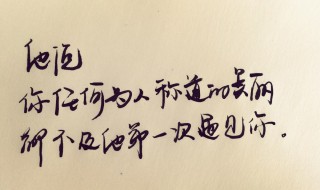 他说
你任何为人称道的美丽
却不及他第一次遇见你。